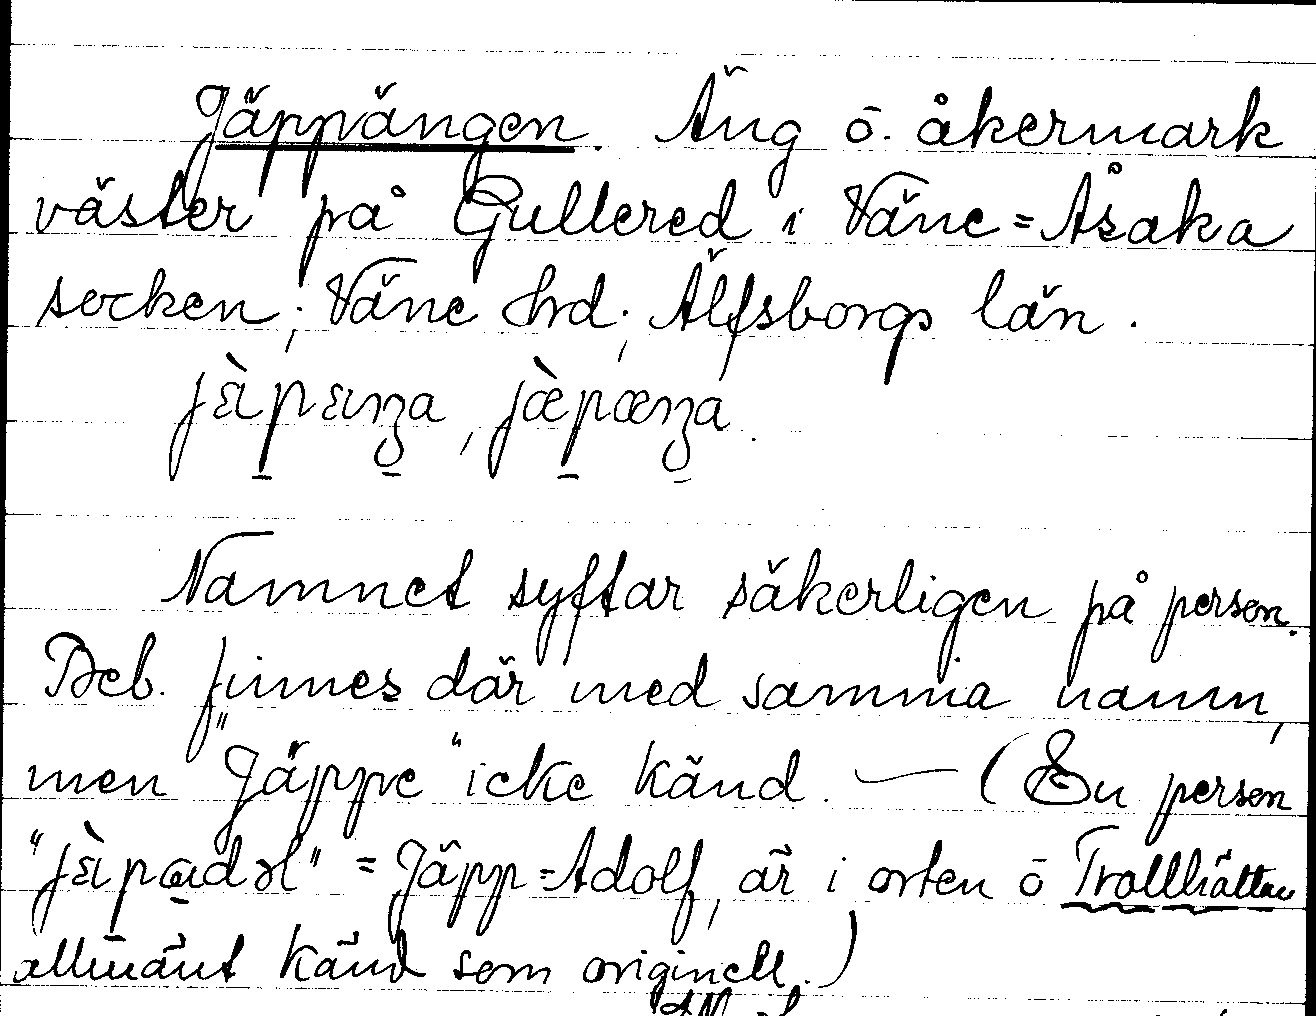 Jäppängen. Äng ō. åkermark
väster på Gullered i Väne=Åsaka
socken; Väne hrd; Älfsborgs län.
Namnet syftar säkerligen på person.
Beb. finnes där med samma namn,
men "Jäppe" icke känd. — (En person
= Jäpp=Adolf, är i orten ō Trollhättan
allmänt känd som originell.)